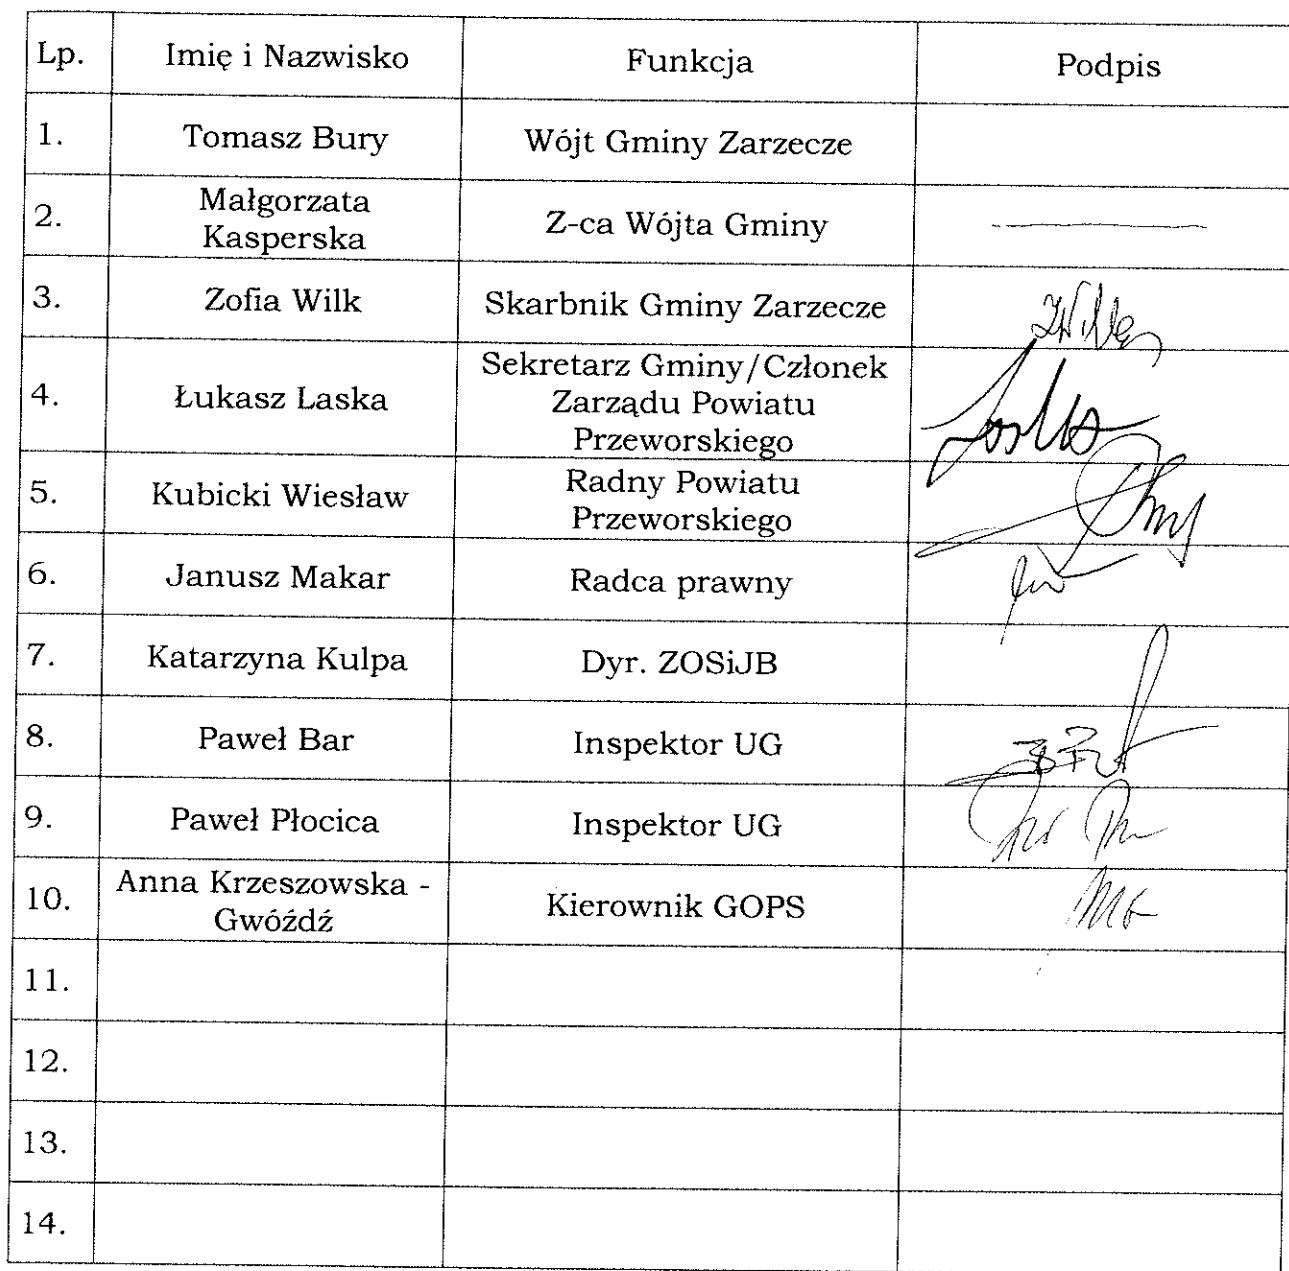 Lp. Imię i Nazwisko Funkcja Podpis
1. Tomasz Bury Wójt Gminy Zarzecze
2. Małgorzata
Kasperska Z-ca Wójta Gminy
3. Zofia Wilk Skarbnik Gminy Zarzecze
4. Łukasz Laska Sekretarz Gminy/Członek
Zarządu Powiatu
Przeworskiego
5. Kubicki Wiesław Radny Powiatu
Przeworskiego
6. Janusz Makar Radca prawny
7. Katarzyna Kulpa Dyr. ZOSiJB
8. Paweł Bar Inspektor UG
9. Paweł Płocica Inspektor UG
10. Anna Krzeszowska -
Gwóźdź Kierownik GOPS
11.
12.
13.
14.